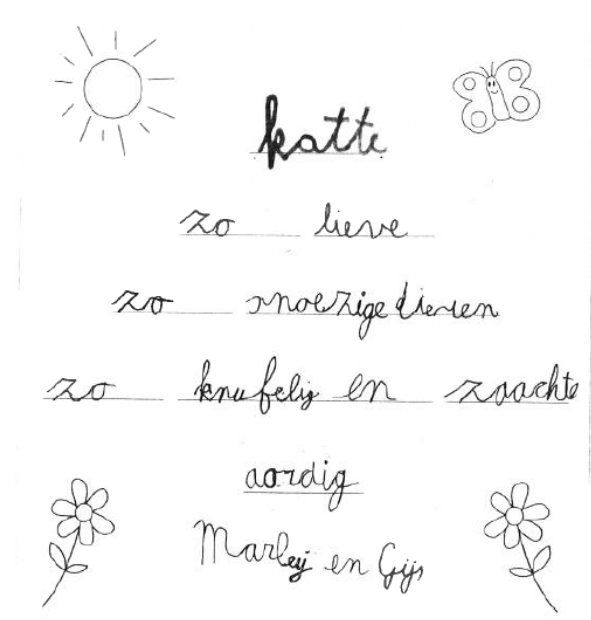 katte
zo lieve
zo snoezige dieren
zo knufelig en zaachte
aardig
Marleij en Gijs